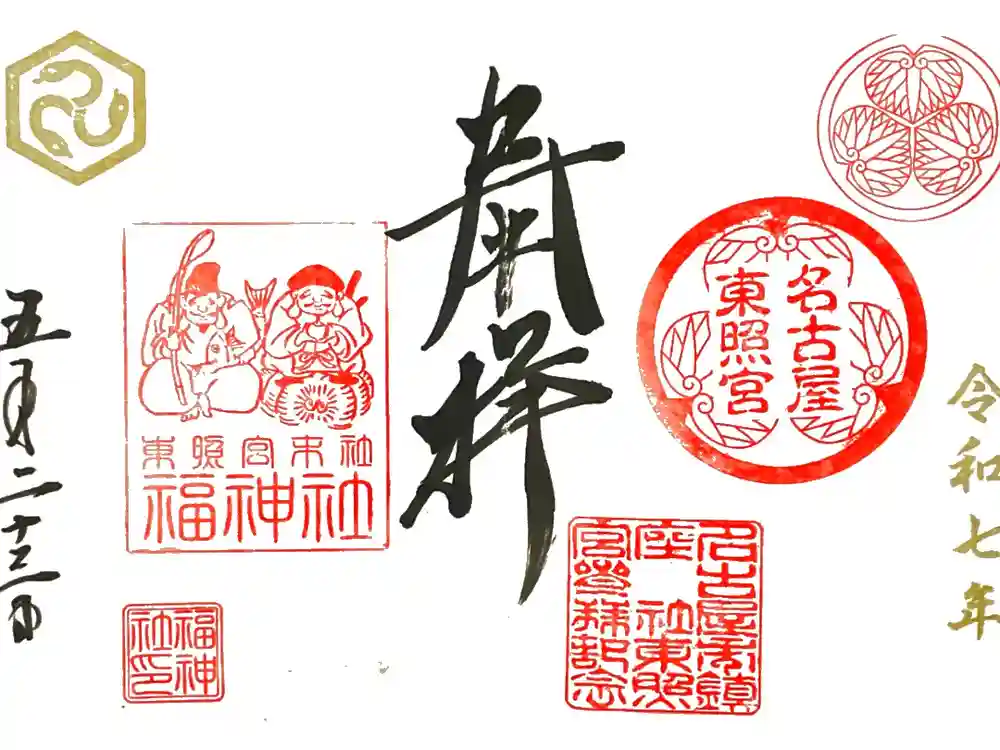 令和七年
名古屋
東照宮
奉拝
名古屋市鎮
座 社東照
宮参拝記念
東照宮末社
福神社
福神
社印
五月二十三日